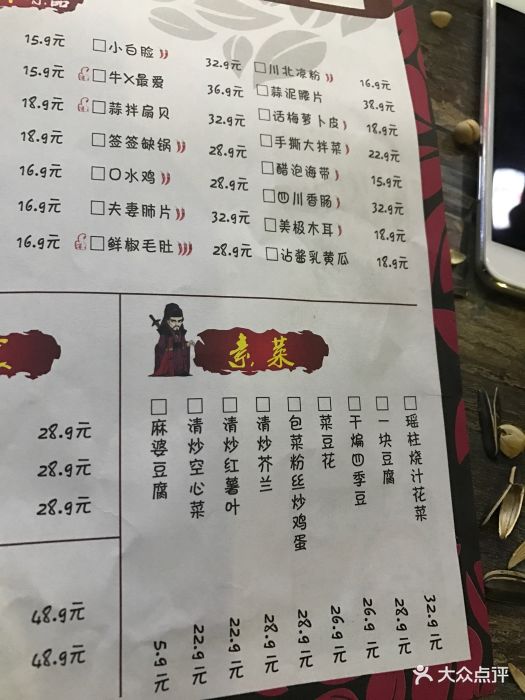 15.9元
15.9元
18.9元
18.9元
16.9元
16.9元
16.9元
小白脸 32.9元
牛X最爱 36.9元
蒜拌扇贝 32.9元
签签缺锅 28.9元
口水鸡 28.9元
夫妻肺片 32.9元
鲜椒毛肚 28.9元
川北凉粉 16.9元
蒜泥腰片 38.9元
话梅萝卜皮 18.9元
手撕大拌菜 22.9元
醋泡海带 15.9元
四川香肠 32.9元
美极木耳 18.9元
沾酱乳黄瓜 18.9元
28.9元
28.9元
28.9元
48.9元
48.9元
素菜
麻婆豆腐 5.9元
清炒空心菜 22.9元
清炒红薯叶 22.9元
清炒芥兰 28.9元
包菜粉丝炒鸡蛋 28.9元
菜豆花 26.9元
干煸四季豆 26.9元
一块豆腐 28.9元
瑶柱烧汁花菜 32.9元
大众点评